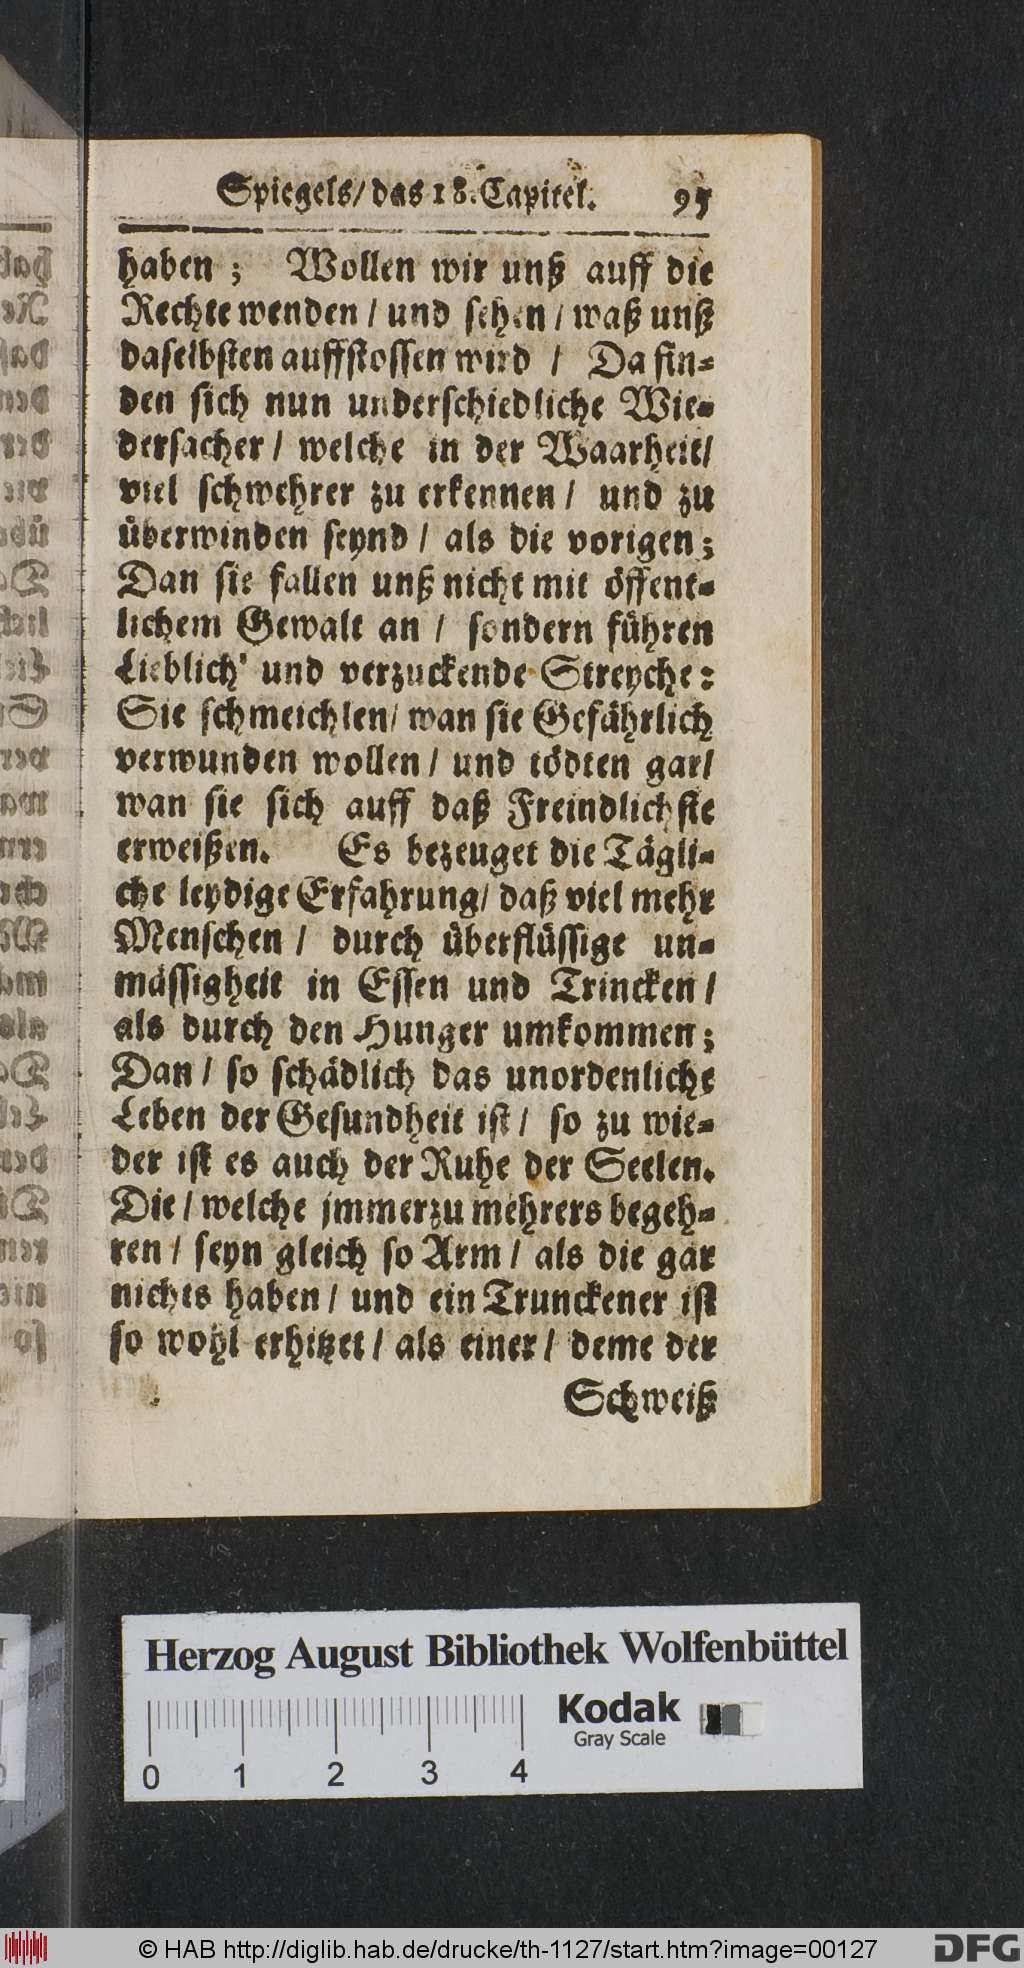 Spiegels/ das 18. Capitel. 95
haben; Wollen wir unß auff die
Rechte wenden / und sehen / waß unß
daselbsten auffstossen wird / Da fin-
den sich nun underschiedliche Wie-
dersacher / welche in der Waarheit/
viel schwehrer zu erkennen / und zu
überwinden seynd / als die vorigen;
Dan sie fallen unß nicht mit öffent-
lichem Gewalt an / sondern führen
Lieblich' und verzuckende Streyche:
Sie schmeichlen/ wan sie Gefährlich
verwunden wollen / und tödten gar/
wan sie sich auff daß Freindlichste
erweißen. Es bezeuget die Tägli-
che leydige Erfahrung/ daß viel mehr
Menschen / durch überflüssige un-
mässigheit in Essen und Trincken /
als durch den Hunger umkommen;
Dan / so schädlich das unordenliche
Leben der Gesundheit ist / so zu wie-
der ist es auch der Ruhe der Seelen.
Die / welche jmmerzu mehrers begeh-
ren / seyn gleich so Arm / als die gar
nichts haben / und ein Trunckener ist
so wohl erhitzet / als einer / deme der
Schweiß
Herzog August Bibliothek Wolfenbüttel
Kodak
Gray Scale
0 1 2 3 4
© HAB http://diglib.hab.de/drucke/th-1127/start.htm?image=00127
DFG